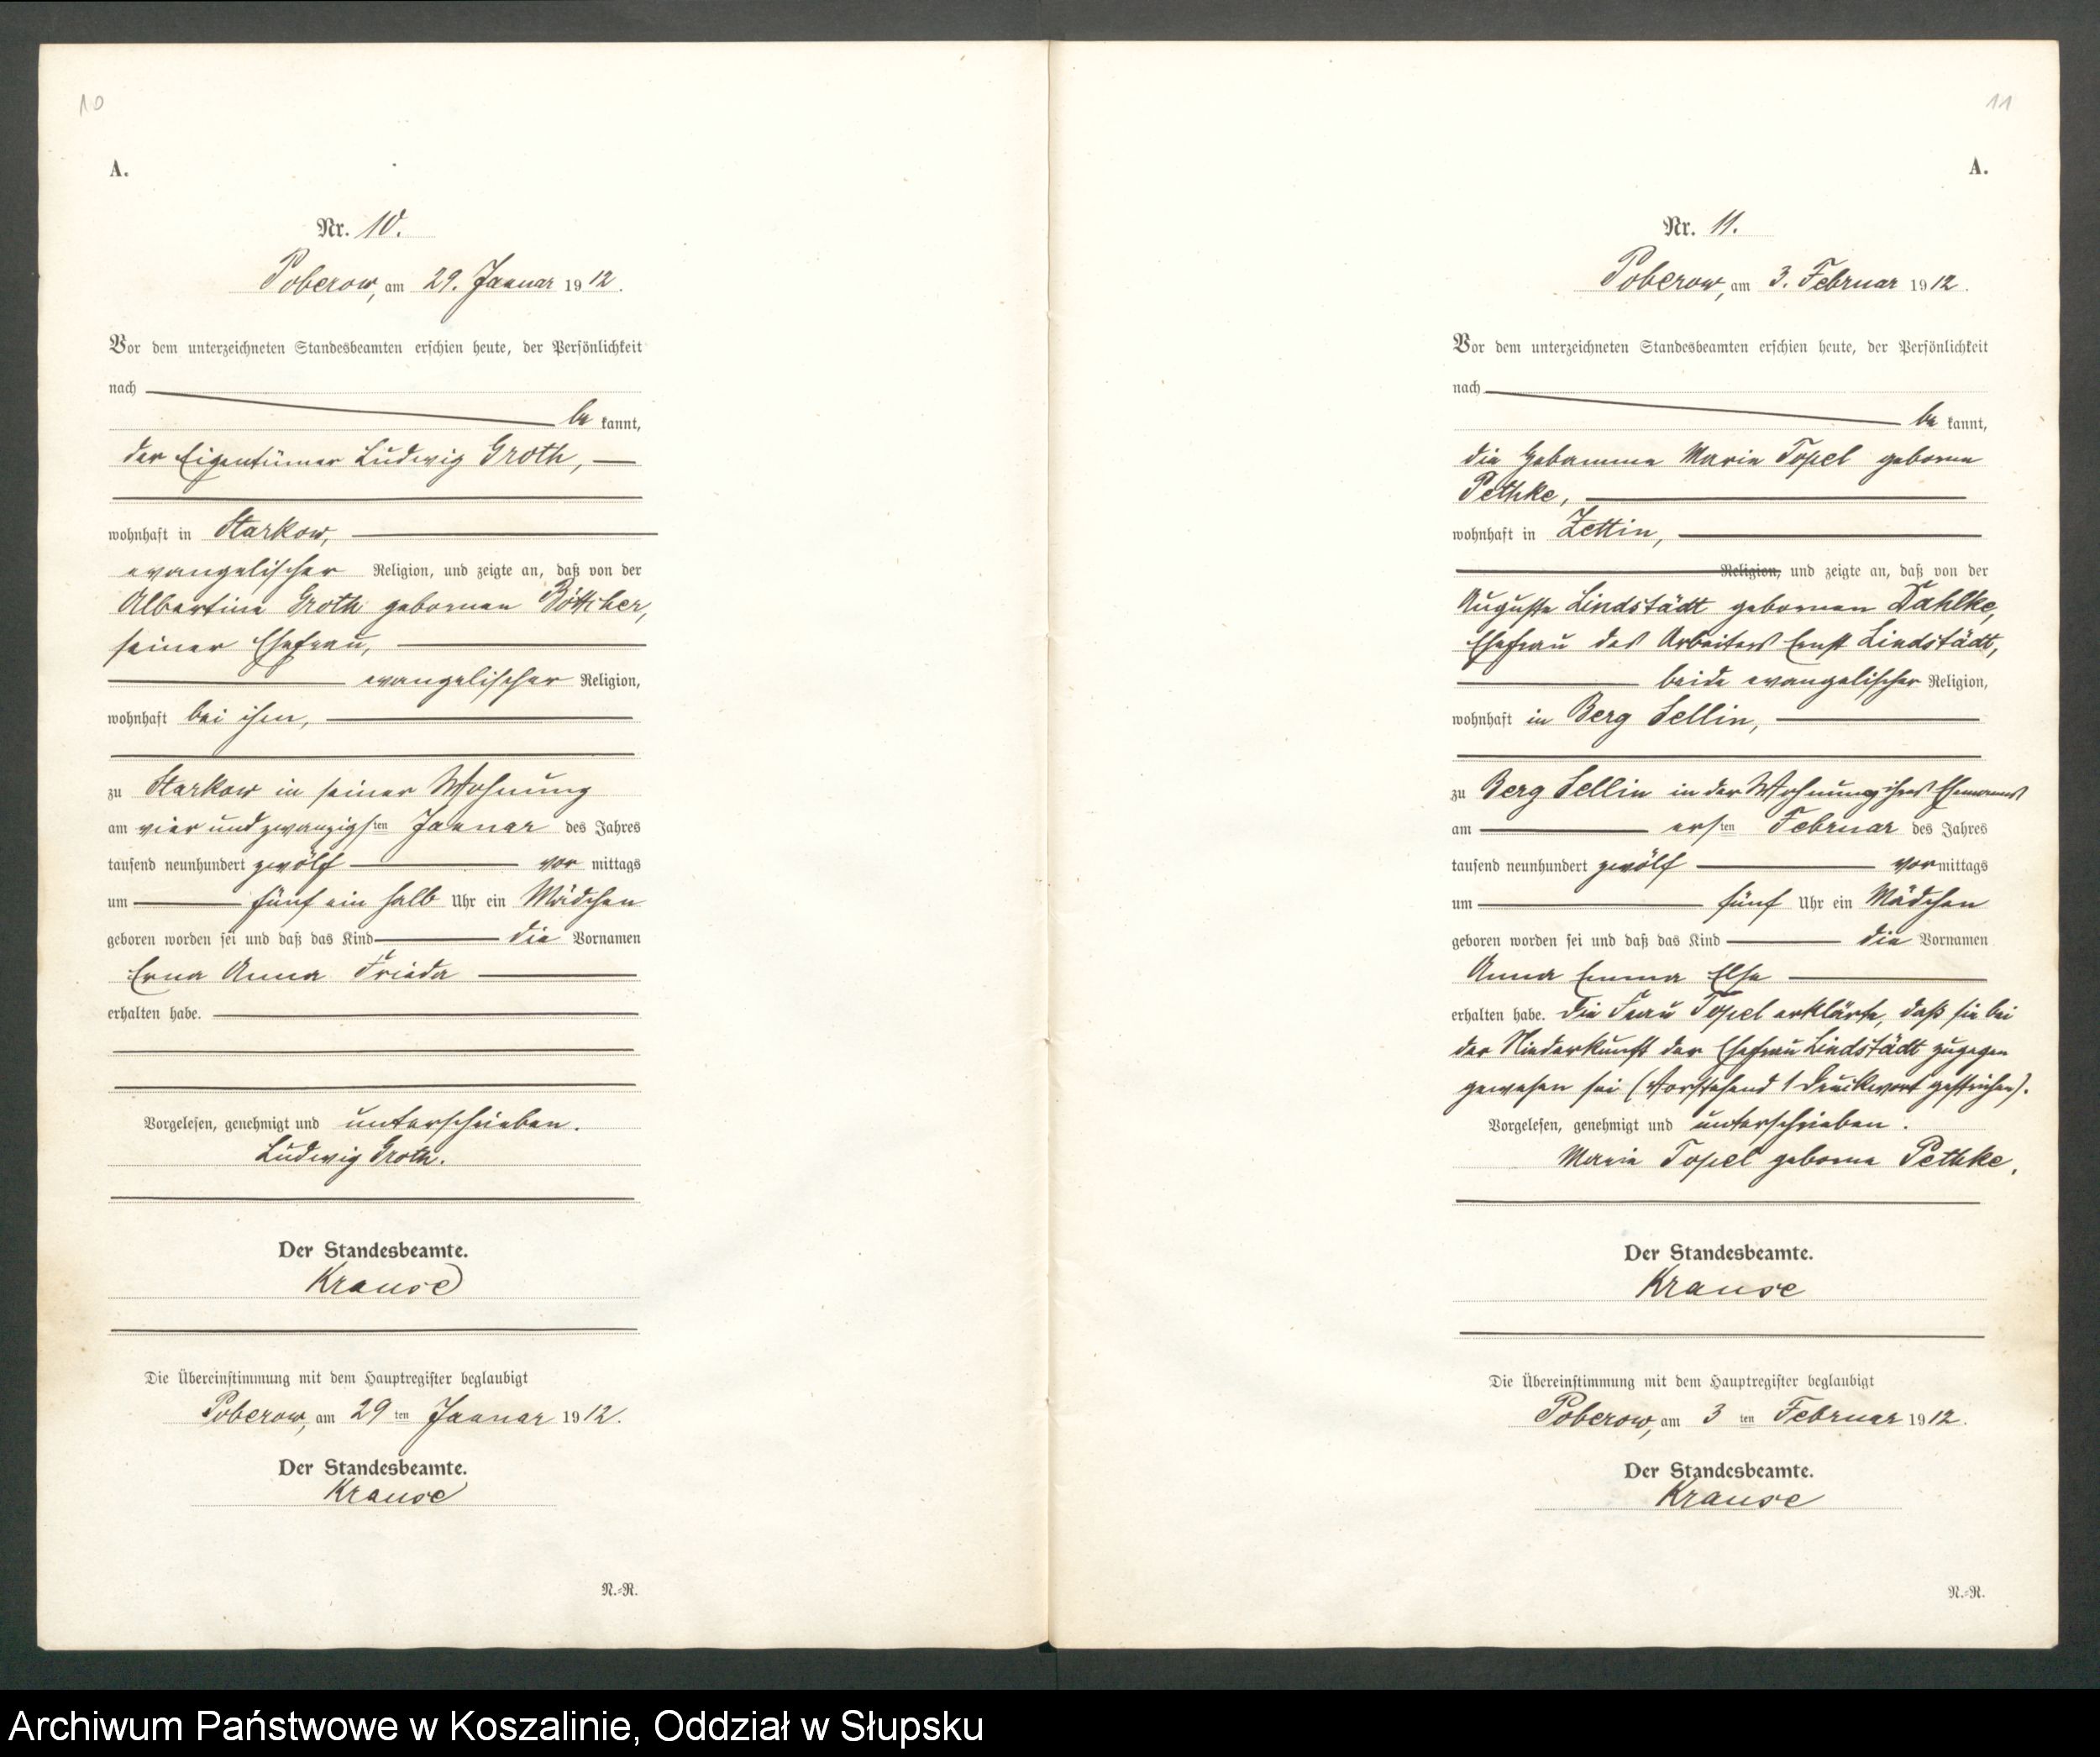 10
A.
Nr. 10.
Poberow, am 29. Januar 1912.
Vor dem unterzeichneten Standesbeamten erschien heute, der Persönlichkeit
nach
be kannt,
der Eigentümer Ludwig Groth,
wohnhaft in Starkow,
evangelischer Religion, und zeigte an, daß von der
Albertine Groth gebornen Böttcher,
seiner Ehefrau,
evangelischer Religion,
wohnhaft bei ihm,
zu Starkow in seiner Wohnung
am vier und zwanzigsten Januar des Jahres
tausend neunhundert zwölf vor mittags
um fünf ein halb Uhr ein Mädchen
geboren worden sei und daß das Kind die Vornamen
Erna Anna Frieda
erhalten habe.
Vorgelesen, genehmigt und unterschrieben.
Ludwig Groth.
Der Standesbeamte.
Krause
Die Übereinstimmung mit dem Hauptregister beglaubigt
Poberow, am 29 ten Januar 1912.
Der Standesbeamte.
Krause
N.-R.
11
A.
Nr. 11.
Poberow, am 3. Februar 1912.
Vor dem unterzeichneten Standesbeamten erschien heute, der Persönlichkeit
nach
be kannt,
die Hebamme Marie Topel geborne
Pethke,
wohnhaft in Zettin,
Religion, und zeigte an, daß von der
Auguste Lindstädt gebornen Dahlke,
Ehefrau des Arbeiters Ernst Lindstädt,
beide evangelischer Religion,
wohnhaft in Berg Sellin,
zu Berg Sellin in der Wohnung ihres Ehemanns
am ersten Februar des Jahres
tausend neunhundert zwölf vormittags
um fünf Uhr ein Mädchen
geboren worden sei und daß das Kind die Vornamen
Anna Emma Else
erhalten habe. Die Frau Topel erklärte, daß sie bei
der Niederkunft der Ehefrau Lindstädt zugegen
gewesen sei (Vorstehend 1 Druckwort gestrichen).
Vorgelesen, genehmigt und unterschrieben.
Marie Topel geborne Pethke.
Der Standesbeamte.
Krause
Die Übereinstimmung mit dem Hauptregister beglaubigt
Poberow, am 3 ten Februar 1912.
Der Standesbeamte.
Krause
N.-R.
Archiwum Państwowe w Koszalinie, Oddział w Słupsku